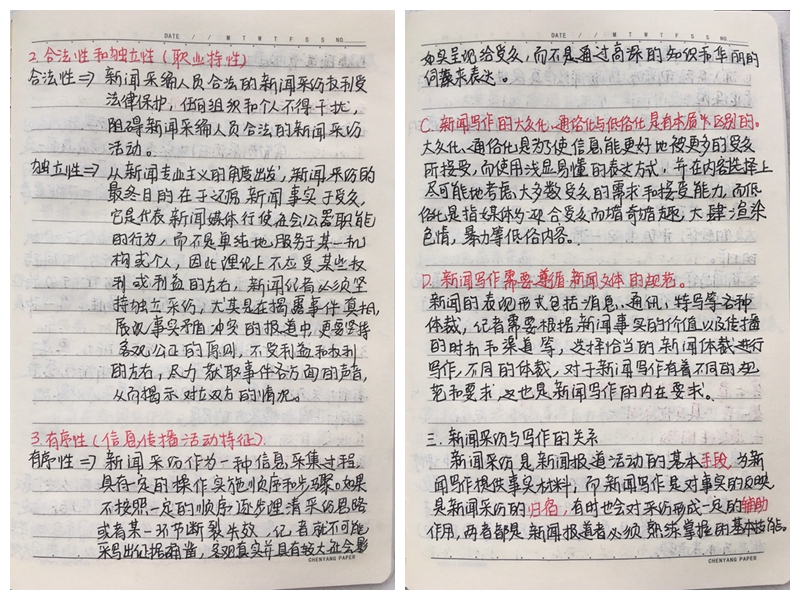 DATE / / M T W T F S S NO.
2.合法性和独立性(职业特性)
合法性⇒ 新闻采编人员合法的新闻采访权利受
法律保护,任何组织和个人不得干扰,
阻碍新闻采编人员合法的新闻采访
活动。
独立性⇒ 从新闻专业主义的角度出发,新闻采访的
最终目的在于还原新闻事实于受众,
它是代表新闻媒体行使社会公器职能
的行为,而不是单纯地服务于某一机
构或个人,因此理论上不应受某些权
利或利益的左右,新闻记者必须坚
持独立采访,尤其是在揭露事件真相,
展现事实矛盾冲突的报道中,更要坚持
客观公正的原则,不受利益和权利
的左右,尽力获取事件各方面的声音,
从而揭示对立双方的情况。
3.有序性(信息传播活动特征)
有序性⇒ 新闻采访作为一种信息采集过程,
具有一定的操作实施顺序和步骤。如果
不按照一定的顺序逐步理清采访思路
或者某一环节断裂失效,记者就不可能
采写出证据确凿,客观真实并具有较大社会影
CHENYANG PAPER
DATE / / M T W T F S S NO.
如实呈现给受众,而不是通过高深的知识和华丽的
词藻来表达。
C. 新闻写作的大众化、通俗化与低俗化是有本质区别的。
大众化、通俗化是为了使信息能更好地被更多的受众
所接受,而使用浅显易懂的表达方式,并在内容选择上
尽可能地考虑大多数受众的需求和接受能力,而低
俗化是指媒体为迎合受众而猎奇猎趣,大肆渲染
色情,暴力等低俗内容。
D. 新闻写作需要遵循新闻文体的规范。
新闻的表现形式包括消息、通讯、特写等各种
体裁,记者需要根据新闻事实的价值以及传播
的时机和渠道等,选择恰当的新闻体裁进行
写作,不同的体裁,对于新闻写作有着不同的规
范和要求,这也是新闻写作的内在要求。
三、新闻采访与写作的关系
新闻采访是新闻报道活动的基本手段,为新
闻写作提供事实材料,而新闻写作是对事实的反映
是新闻采访的归宿,有时也会对采访形成一定的辅助
作用,两者都是新闻报道者必须熟练掌握的基本技能。
CHENYANG PAPER